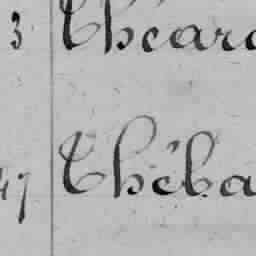 3 Théard
47 Théba